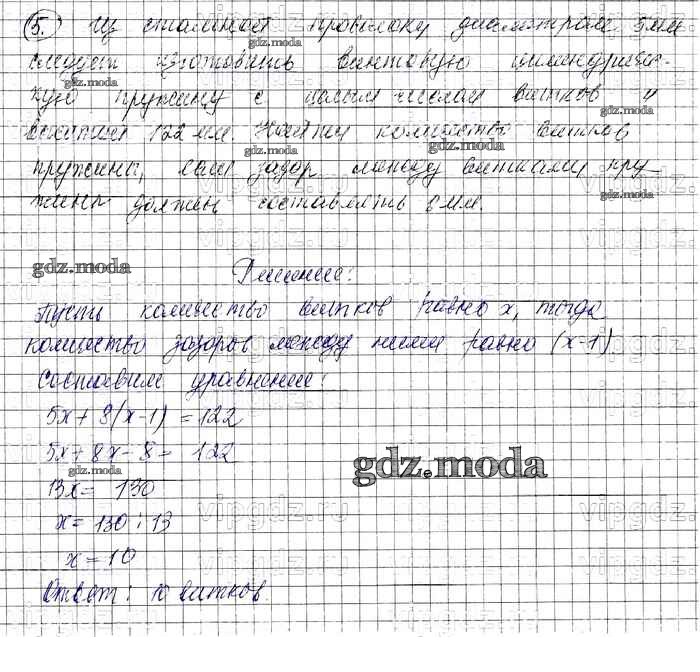 5. Из стальной проволоки диаметром 5мм
следует изготовить винтовую цилиндричес-
кую пружину с целым числом витков и
высотой 122 мм. Найти количество витков
пружины, если зазор между витками пру-
жины должен составлять 8 мм.
Решение:
Пусть количество витков равно x, тогда
количество зазоров между ними равно (x-1)
Составим уравнение:
5x + 8(x-1) = 122
5x + 8x - 8 = 122
13x = 130
x = 130 : 13
x = 10
Ответ: 10 витков.
gdz.moda
gdz.moda
gdz.moda
gdz.moda
gdz.moda
gdz.moda
gdz.moda
gdz.moda
gdz.moda
gdz.moda
vipgdz.ru